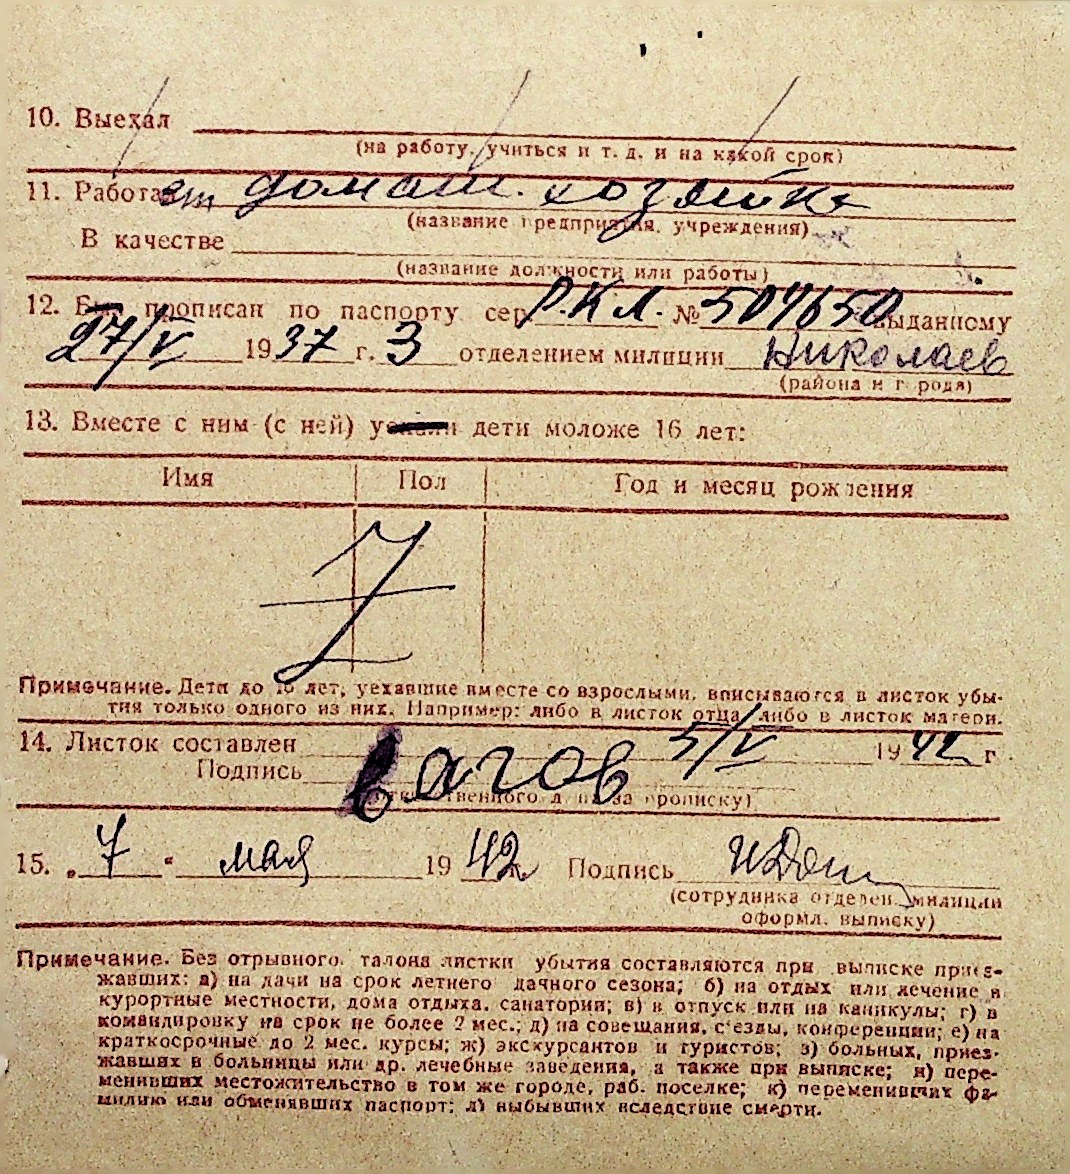 10. Выехал
(на работу, учиться и т. д. и на какой срок)
11. Работает домаш. хозяйка
(название предприятия, учреждения)
В качестве
(название должности или работы)
12. Был прописан по паспорту сер. Р.К.Л. № 504650 выданному
27/V 1937 г. 3 отделением милиции Николаев
(района и города)
13. Вместе с ним (с ней) у дети моложе 16 лет:
Имя Пол Год и месяц рождения
Z
Примечание. Дети до 16 лет, уехавшие вместе со взрослыми, вписываются в листок убы-
тия только одного из них. Например: либо в листок отца, либо в листок матери.
14. Листок составлен 5/V 1942 г.
Подпись
(ответственного за прописку)
15. „7" мая 1942 г. Подпись
(сотрудника отделен. милиции
оформл. выписку)
Примечание. Без отрывного талона листки убытия составляются при выписке приез-
жавших: а) на дачи на срок летнего дачного сезона; б) на отдых или лечение в
курортные местности, дома отдыха, санатории; в) в отпуск или на каникулы; г) в
командировку на срок не более 2 мес.; д) на совещания, съезды, конференции; е) на
краткосрочные до 2 мес. курсы; ж) экскурсантов и туристов; з) больных, приез-
жавших в больницы или др. лечебные заведения, а также при выписке; и) пере-
менивших местожительство в том же городе, раб. поселке; к) переменивших фа-
милию или обменявших паспорт; л) выбывших вследствие смерти.